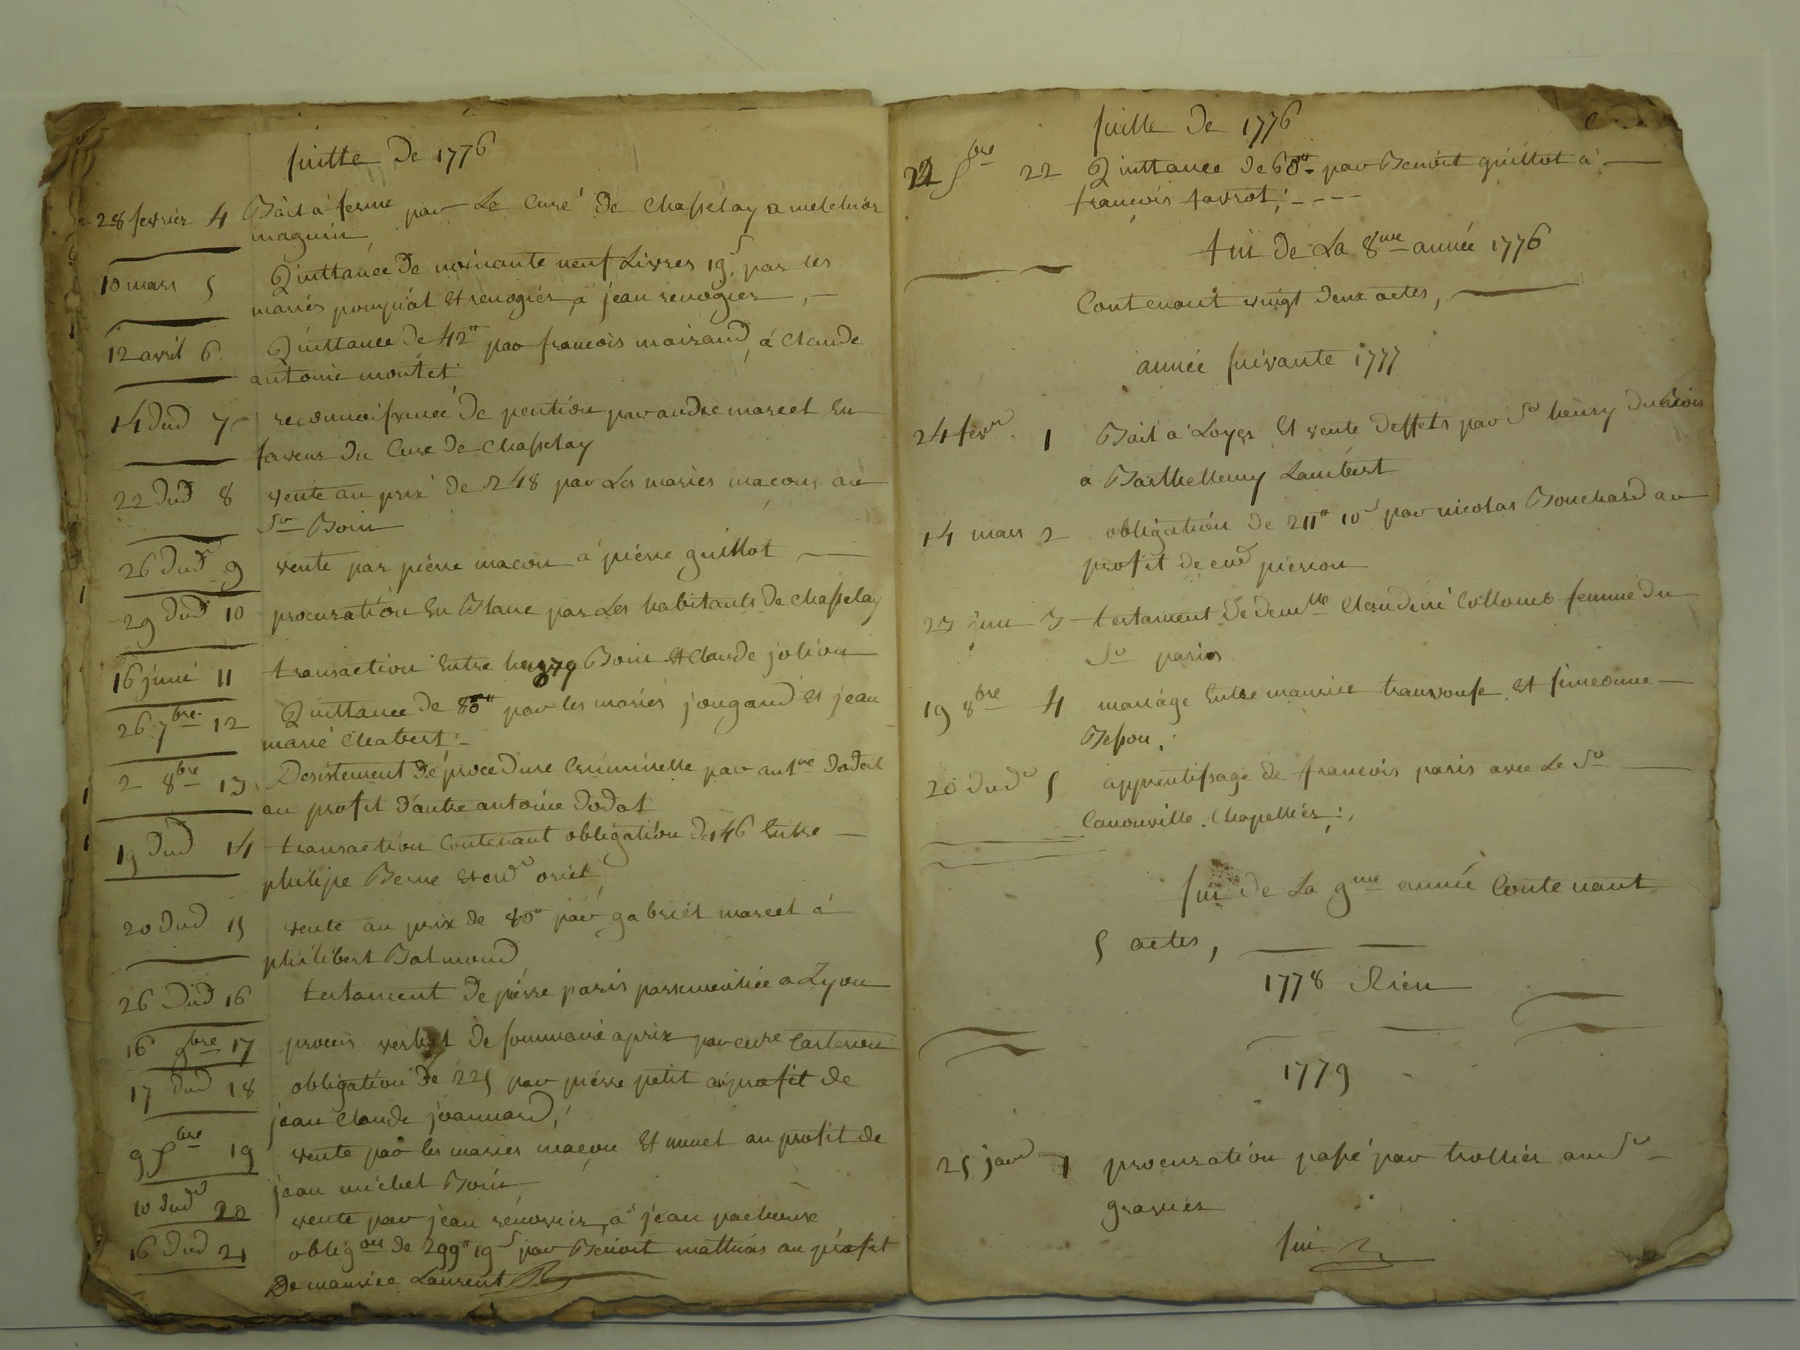 suitte De 1776
28 fevrier 4 Bail a ferme par Le Curé De Chasselay a melchior
maguin
10 mars 5 Quittance De noinante neuf Livres 19s par les
mariés ponynat Et renogier, a jean renogier, —
12 avril 6 Quittance de 42# par francois mairand, a Claude
antoine montet
14 dud 7 reconnoissance De pention par andre marcel En
faveur Du Cure De Chasselay
22 Dud 8 vente au prix de 248 par Les mariés macons au
Sr Boin
26 Dud 9 vente par pierre macon a pierre guillot —
29 Dud 10 procuration En Blanc par Les habitants de Chasselay
16 juin 11 transaction Entre Boin Et Claude jolivon
26 7bre 12 Quittance de 80# par les mariés jougand et jean
marie Chabert :-
2 8bre 13 Desistement De procedure Criminelle par antne Dodat
au profit D'autre antoine Dodat
19 Dud 14 transaction Contenant obligation De 146 Entre —
philipe Berne Et oriel
20 Dud 15 vente au prix de par gabriel marcel á
philibert Balmond
26 Dud 16 testament De pierre paris passementier a Lyon
16 9bre 17 procès verbal De sommaire aprix par
17 dud 18 obligation De 225 par pierre petit au profit de
jean Claude joannard,
9 Xbre 19 vente par les mariés maçon Et au profit de
jean michel Boin
10 Dud 20 vente par jean renovier, a jean
16 Dud 21 obligon de 299# 19s par Benoit mathias au profit
De maurice Laurent
suitte De 1776
22 Xbre 22 Quittance de 60# par Benoit guillot a —
francois favrot, - - - -
fin de La 8me année 1776
Contenant vingt deux actes, —
année suivante 1777
24 fevr 1 Bail a Loyer Et vente D'effets par Sr henry Dubois
a Barthellemy Lambert
14 mars 2 obligation de 211# 10s par nicolas Bouchard au
profit de pierron
23 juin 3 testament De demlle Claudine Collomb femme du
Sr paris
19 8bre 4 mariage Entre maurice Et simeonne —
Besson,
20 Dud 5 apprentissage de francois paris avec Le Sr —
Canonville Chapellier:,
fin de La 9me année Contenant
5 actes, — —
1778 Rien
1779
25 janv 1 procuration passé par trollier au Sr —
gravier
fin